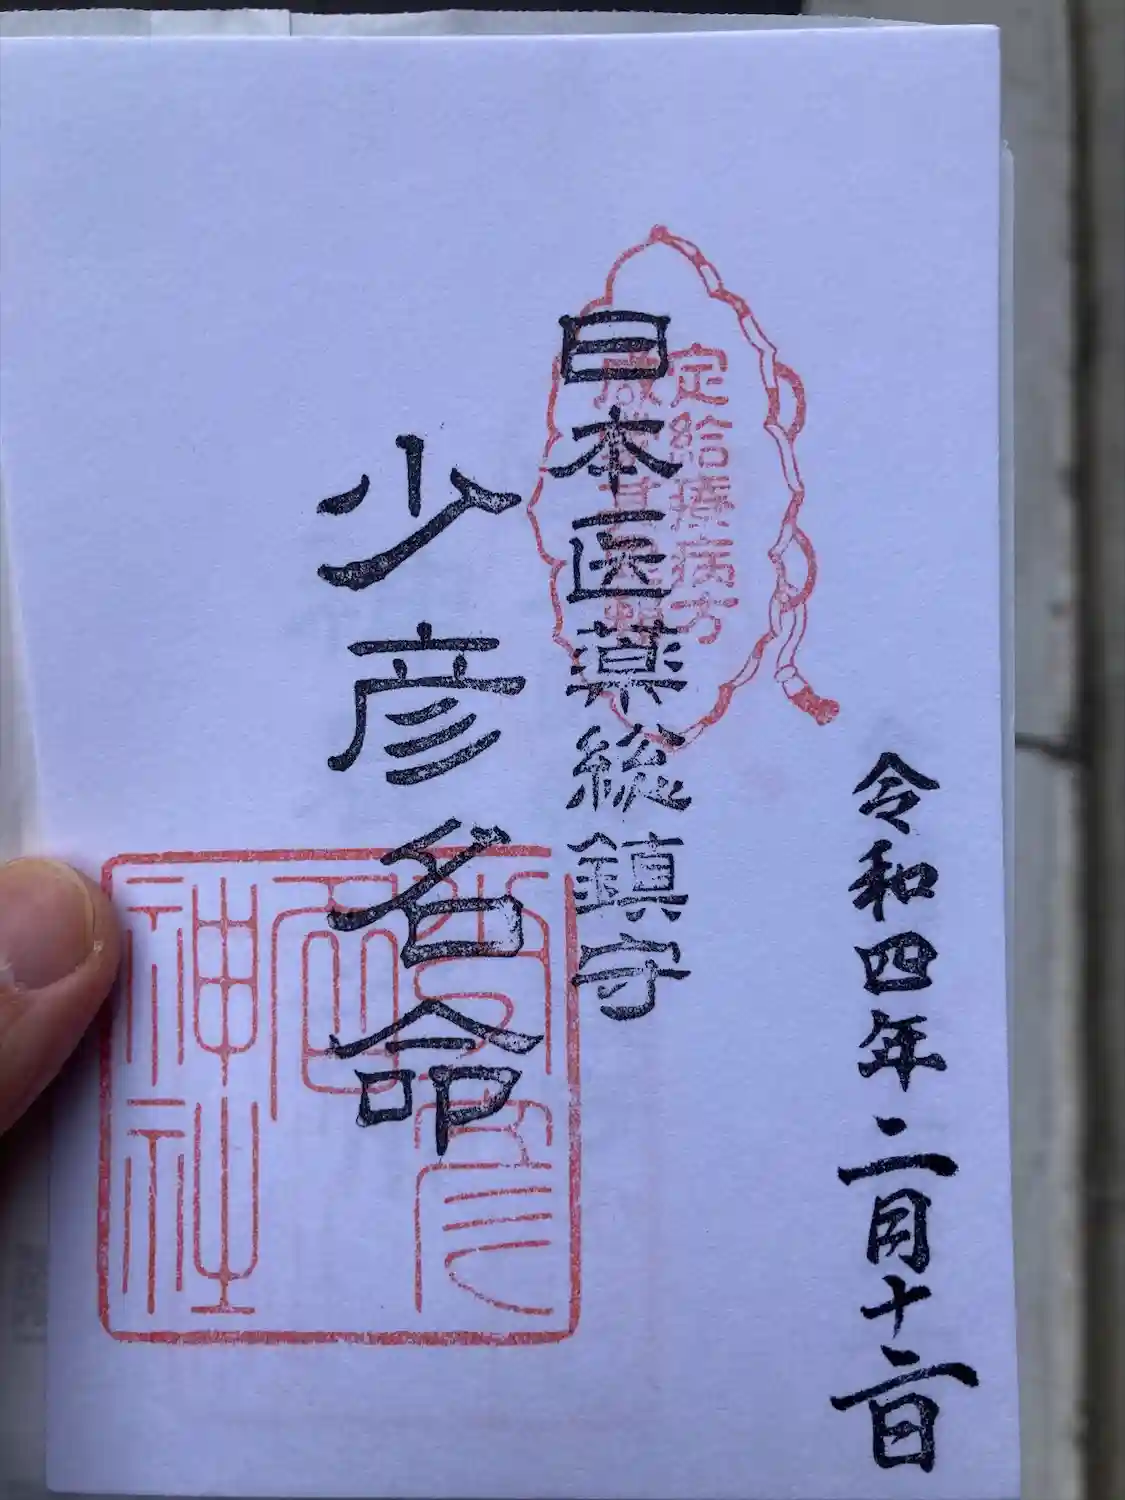 令和四年二月十二日
定給療病方
咸蒙其恩頼
日本医薬総鎮守
少彦名命
神社